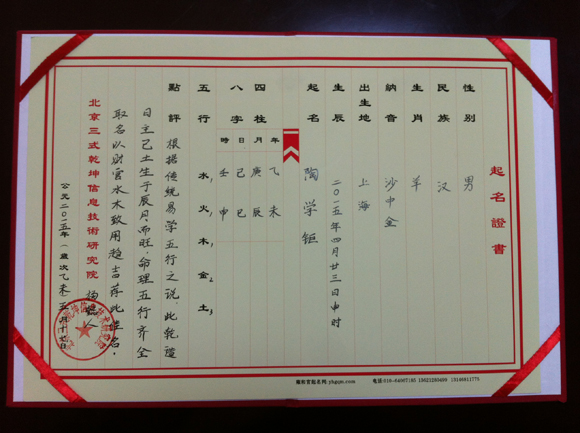 起名證書
性别 男
民族 汉
生肖 羊
納音 沙中金
出生地 上海
生辰 二〇一五年四月廿三日申时
起名 陶学钜
四柱 年 月 日 時
八字 乙未 庚辰 己巳 壬申
五行 水1 火1 木1 金2 土3
點評 根据传统易学五行之说，此乾造
日主己土生于辰月而旺，命理五行齐全
取名以财官水木致用趋吉荐此佳名，
北京三式乾坤信息技術研究院
公元二〇一五年（歲次乙未）五月十七日